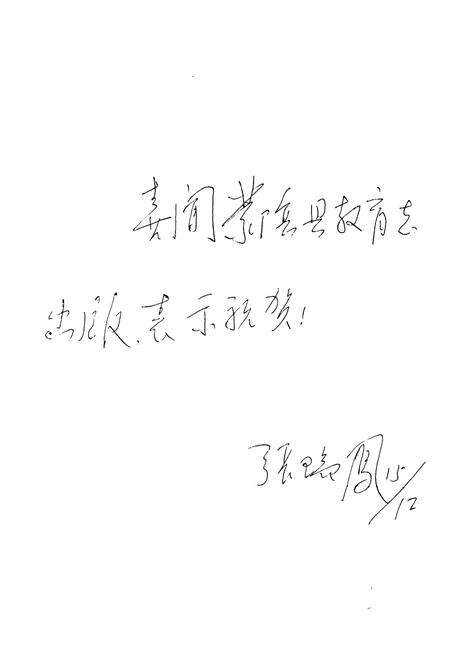 喜闻蒙阴县教育志
出版、表示祝贺！
張瑞鳳 15/12